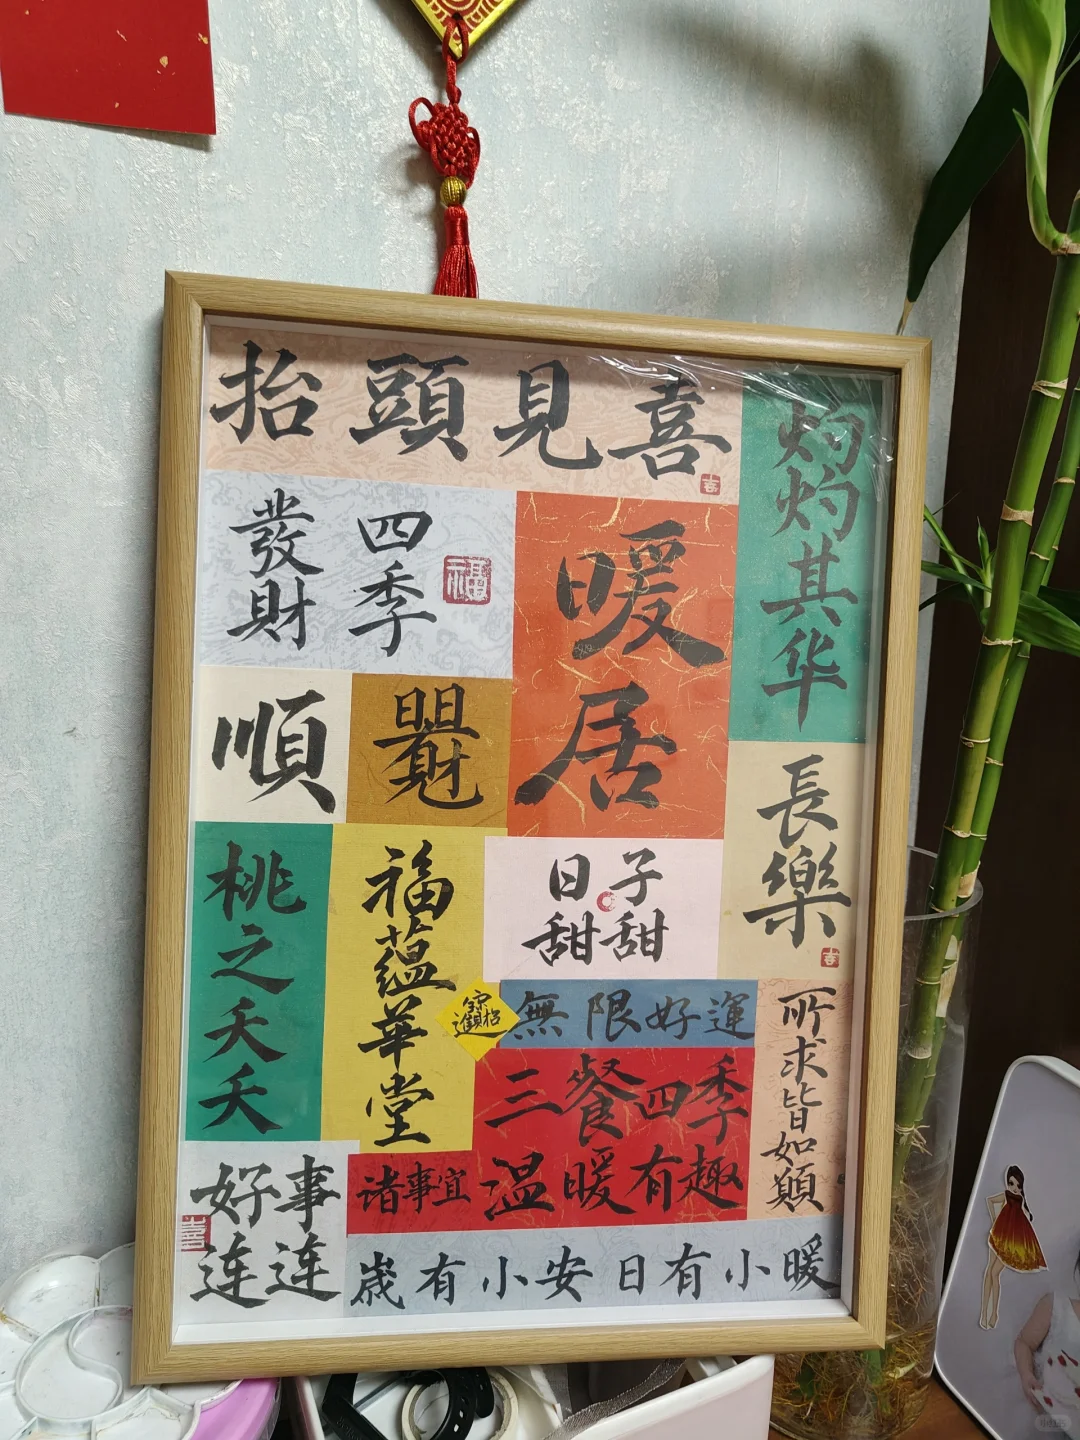 抬頭見喜
喜
灼灼其华
發財
四季
福
暖居
順
長樂
喜
桃之夭夭
福蕴華堂
日子
甜甜
招財進寶
無限好運
三餐四季
温暖有趣
所求皆如願
好事
连连
喜
诸事宜
嵗有小安 日有小暖